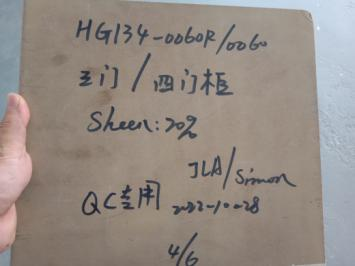 HG134-0060R/0060
三门/四门柜
Sheen:20%
JLA/Simon
QC专用 2022-10-28
4/6